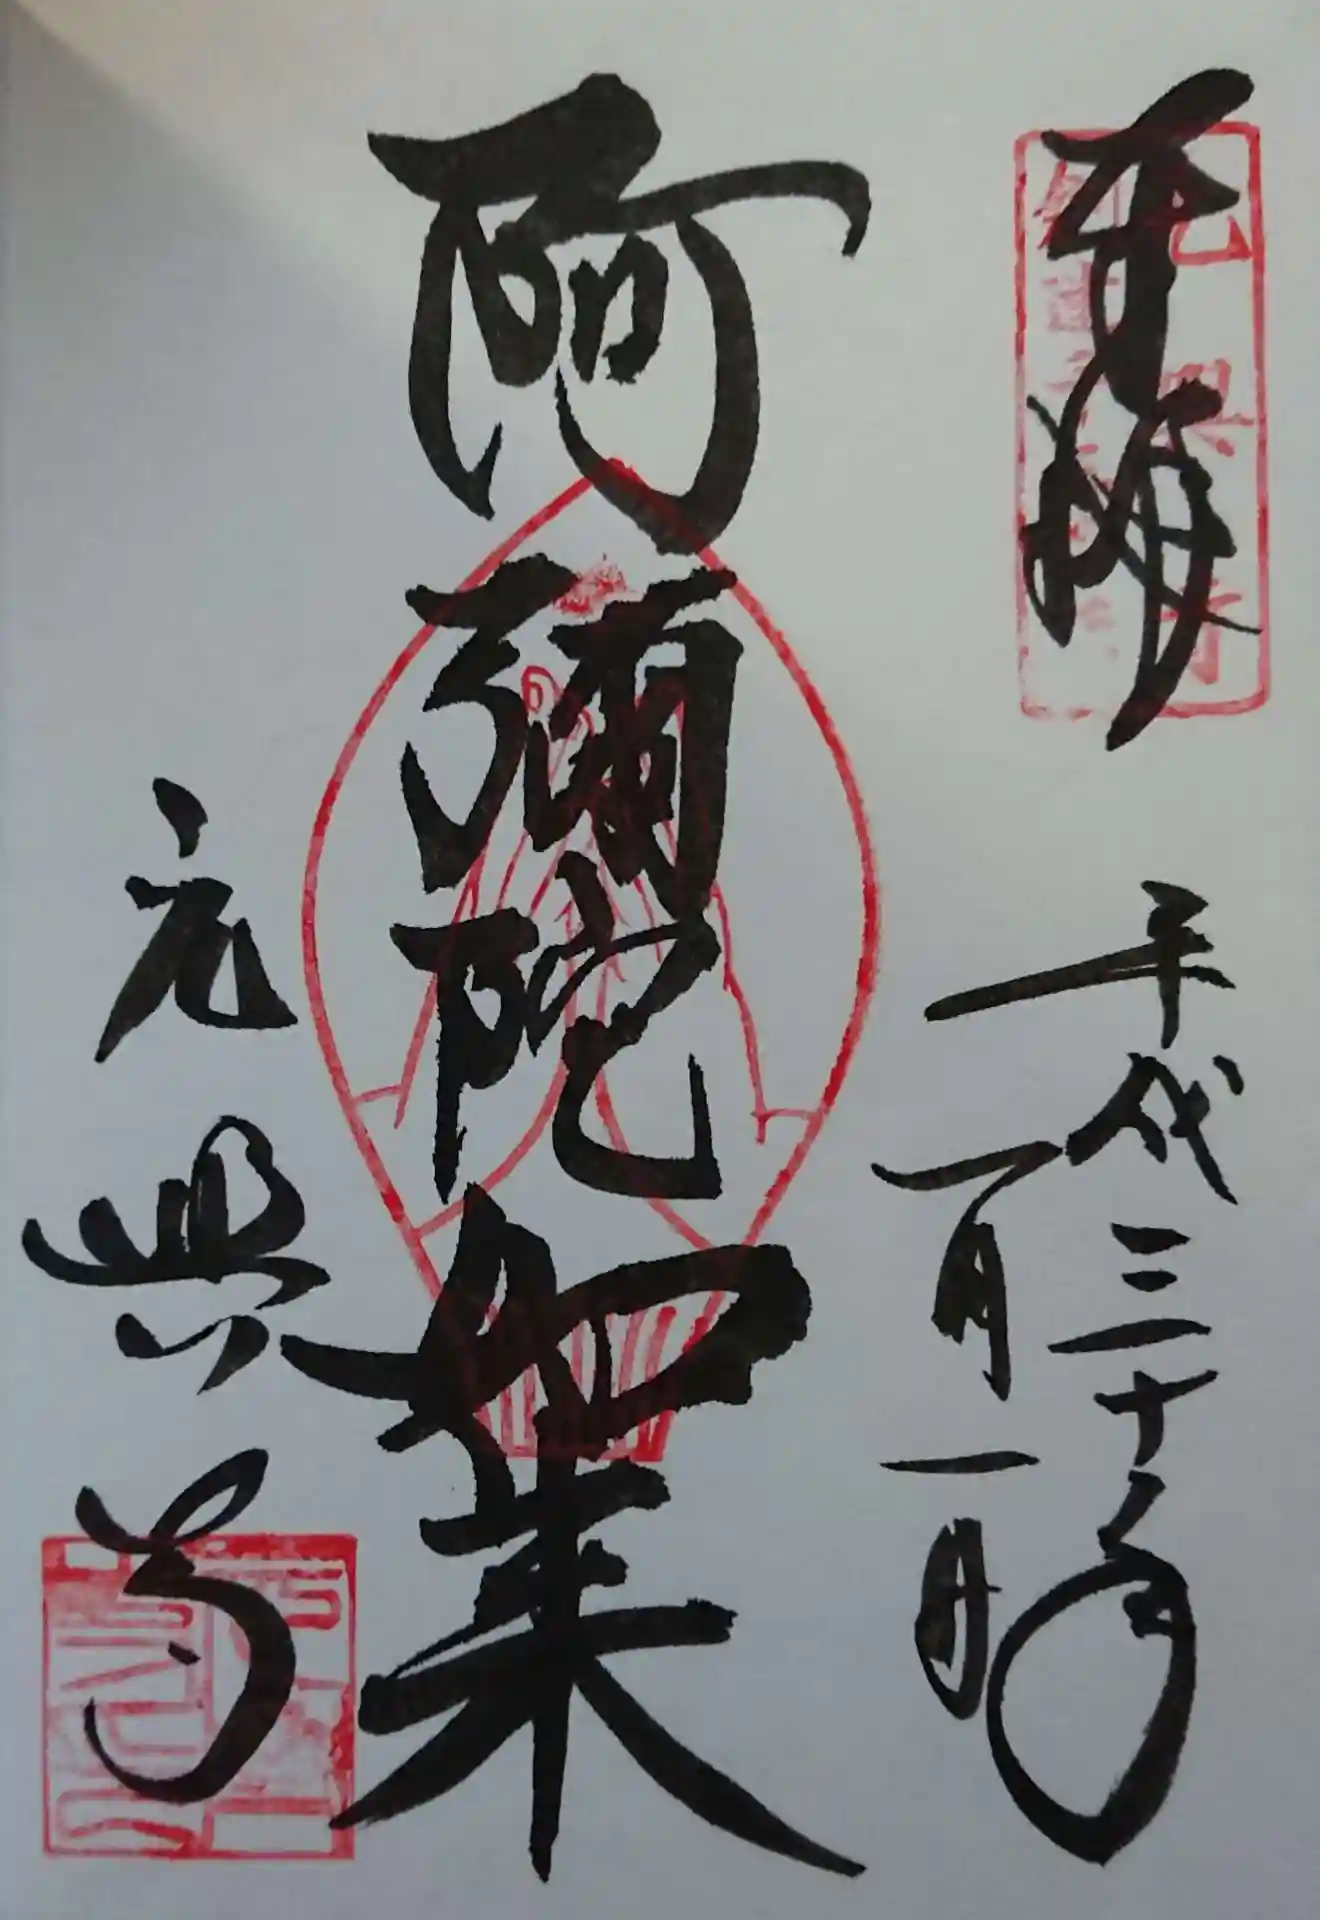 奉拝
平成三十年
一月一日
阿彌陀如来
元興寺
元興寺